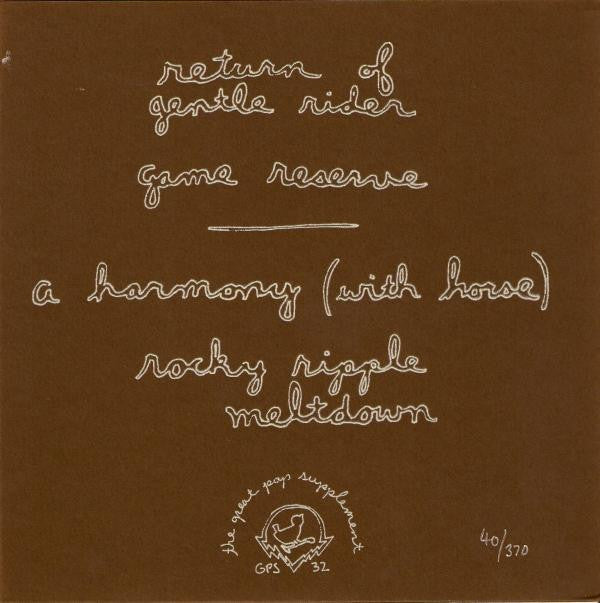 return of
gentle rider
game reserve
a harmony (with horse)
rocky ripple
meltdown
the great pop supplement
GPS 32
40/370